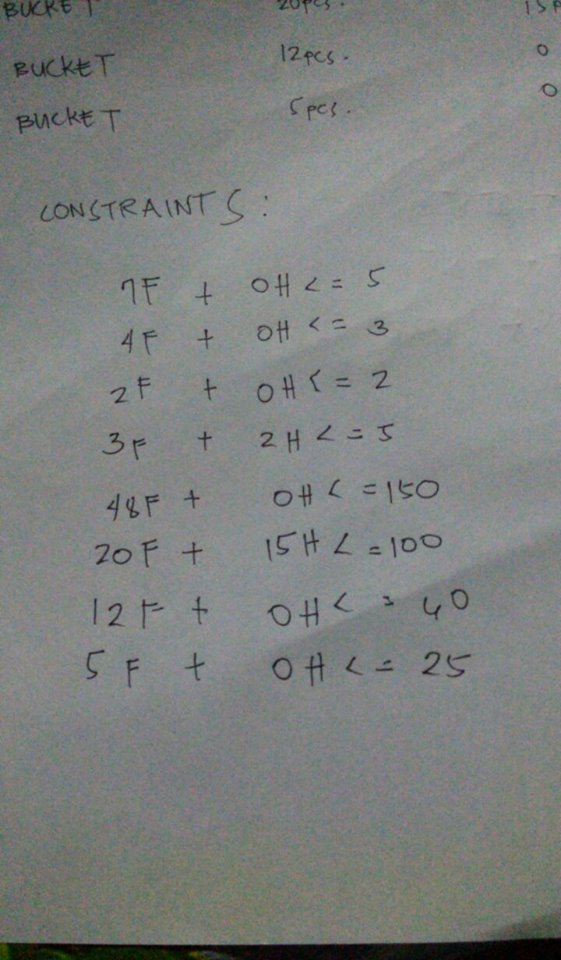 BUCKET 20pcs. 15
BUCKET 12pcs. 0
BUCKET 5pcs. 0
CONSTRAINTS:
7F + 0H <= 5
4F + 0H <= 3
2F + 0H <= 2
3F + 2H <= 5
48F + 0H <= 150
20F + 15H <= 100
12F + 0H <= 40
5F + 0H <= 25